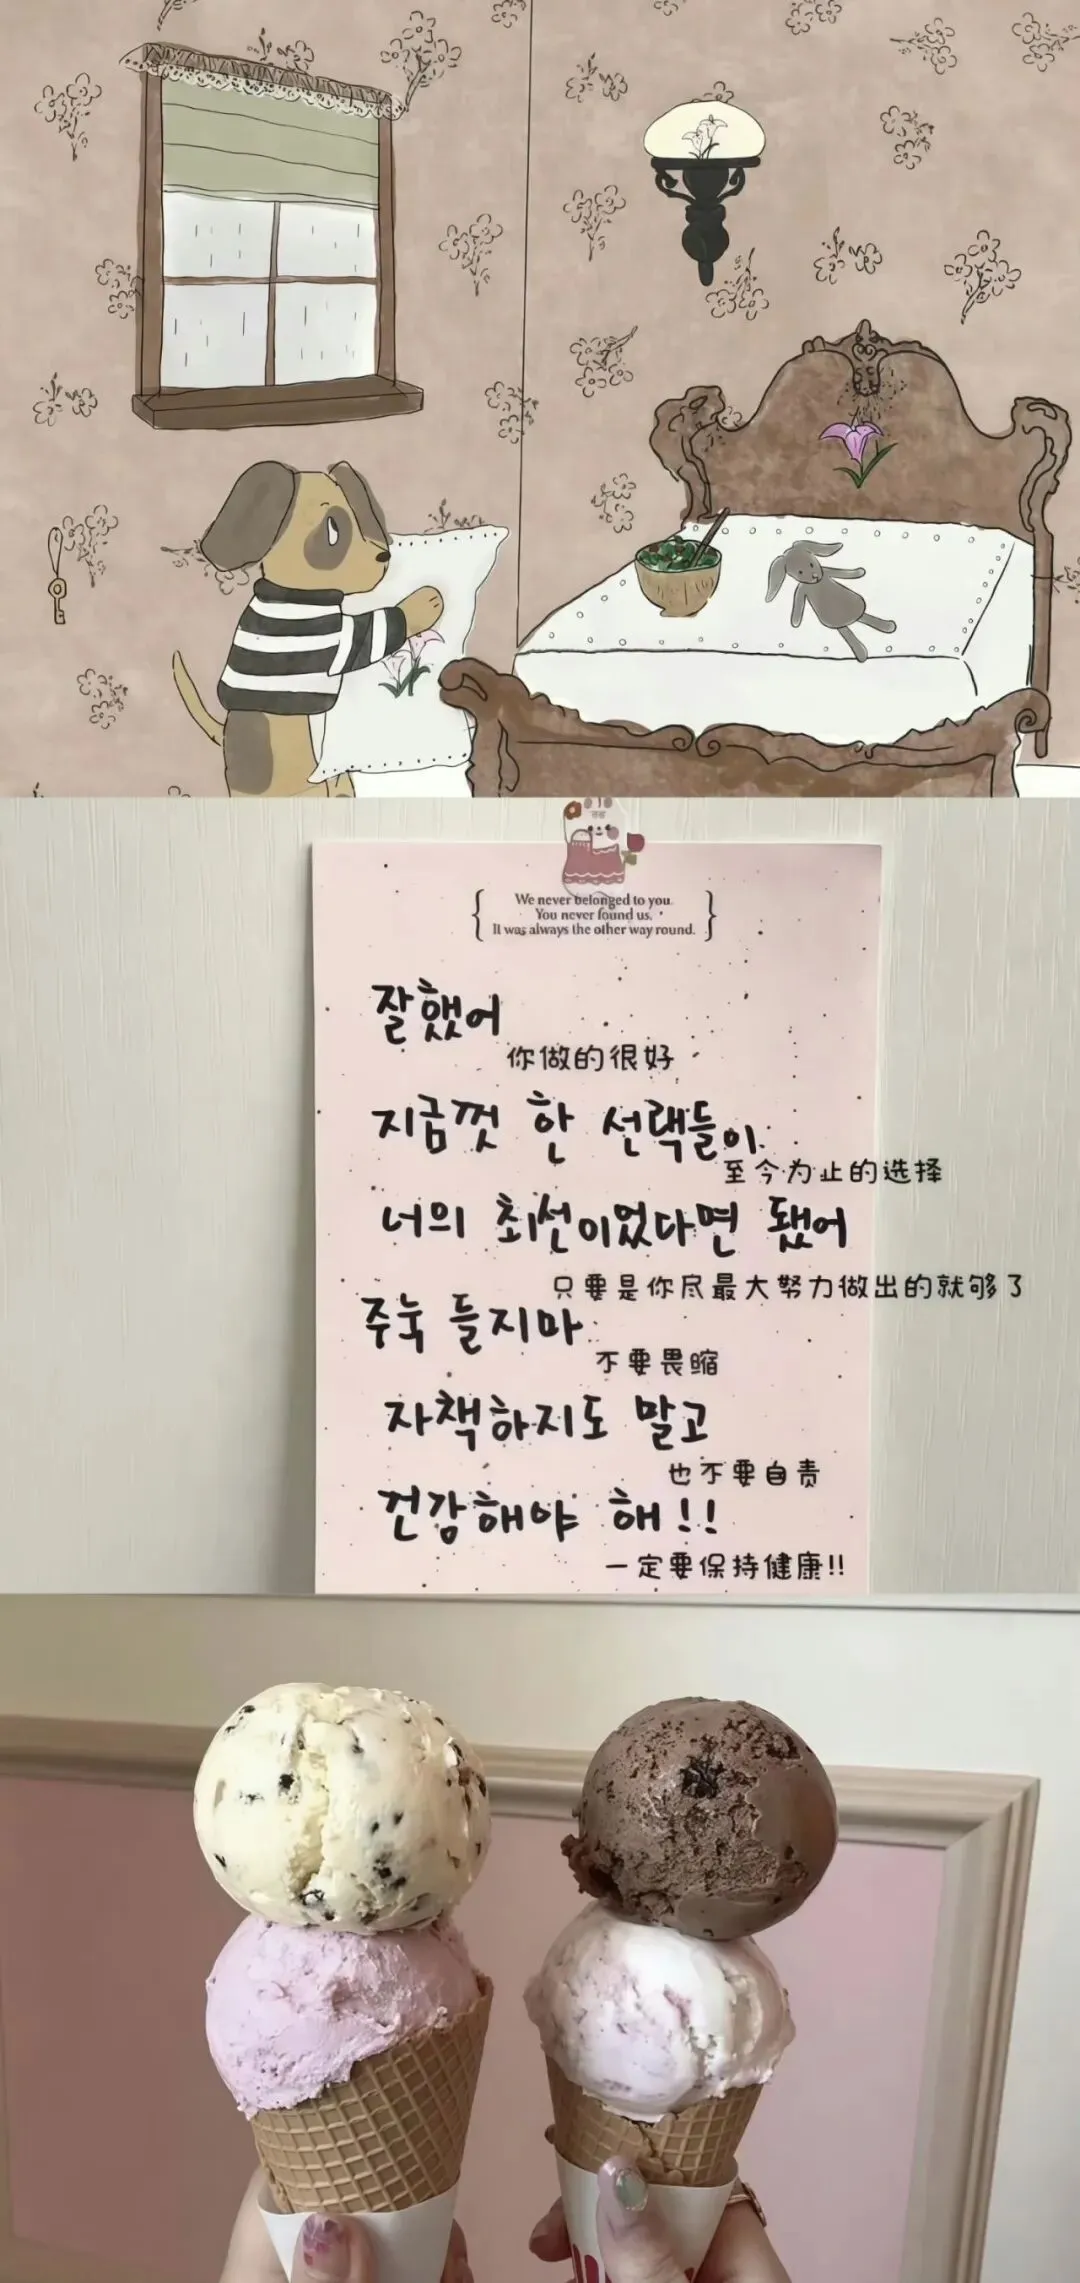 We never belonged to you.
You never found us.
It was always the other way round.
잘했어
你做的很好
지금껏 한 선택들이
至今为止的选择
너의 최선이었다면 됐어
只要是你尽最大努力做出的就够了
주눅 들지마
不要畏缩
자책하지도 말고
也不要自责
건강해야 해!!
一定要保持健康!!